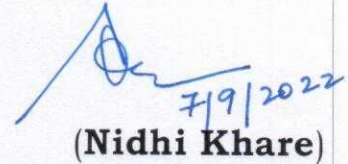 7/9/2022
(Nidhi Khare)